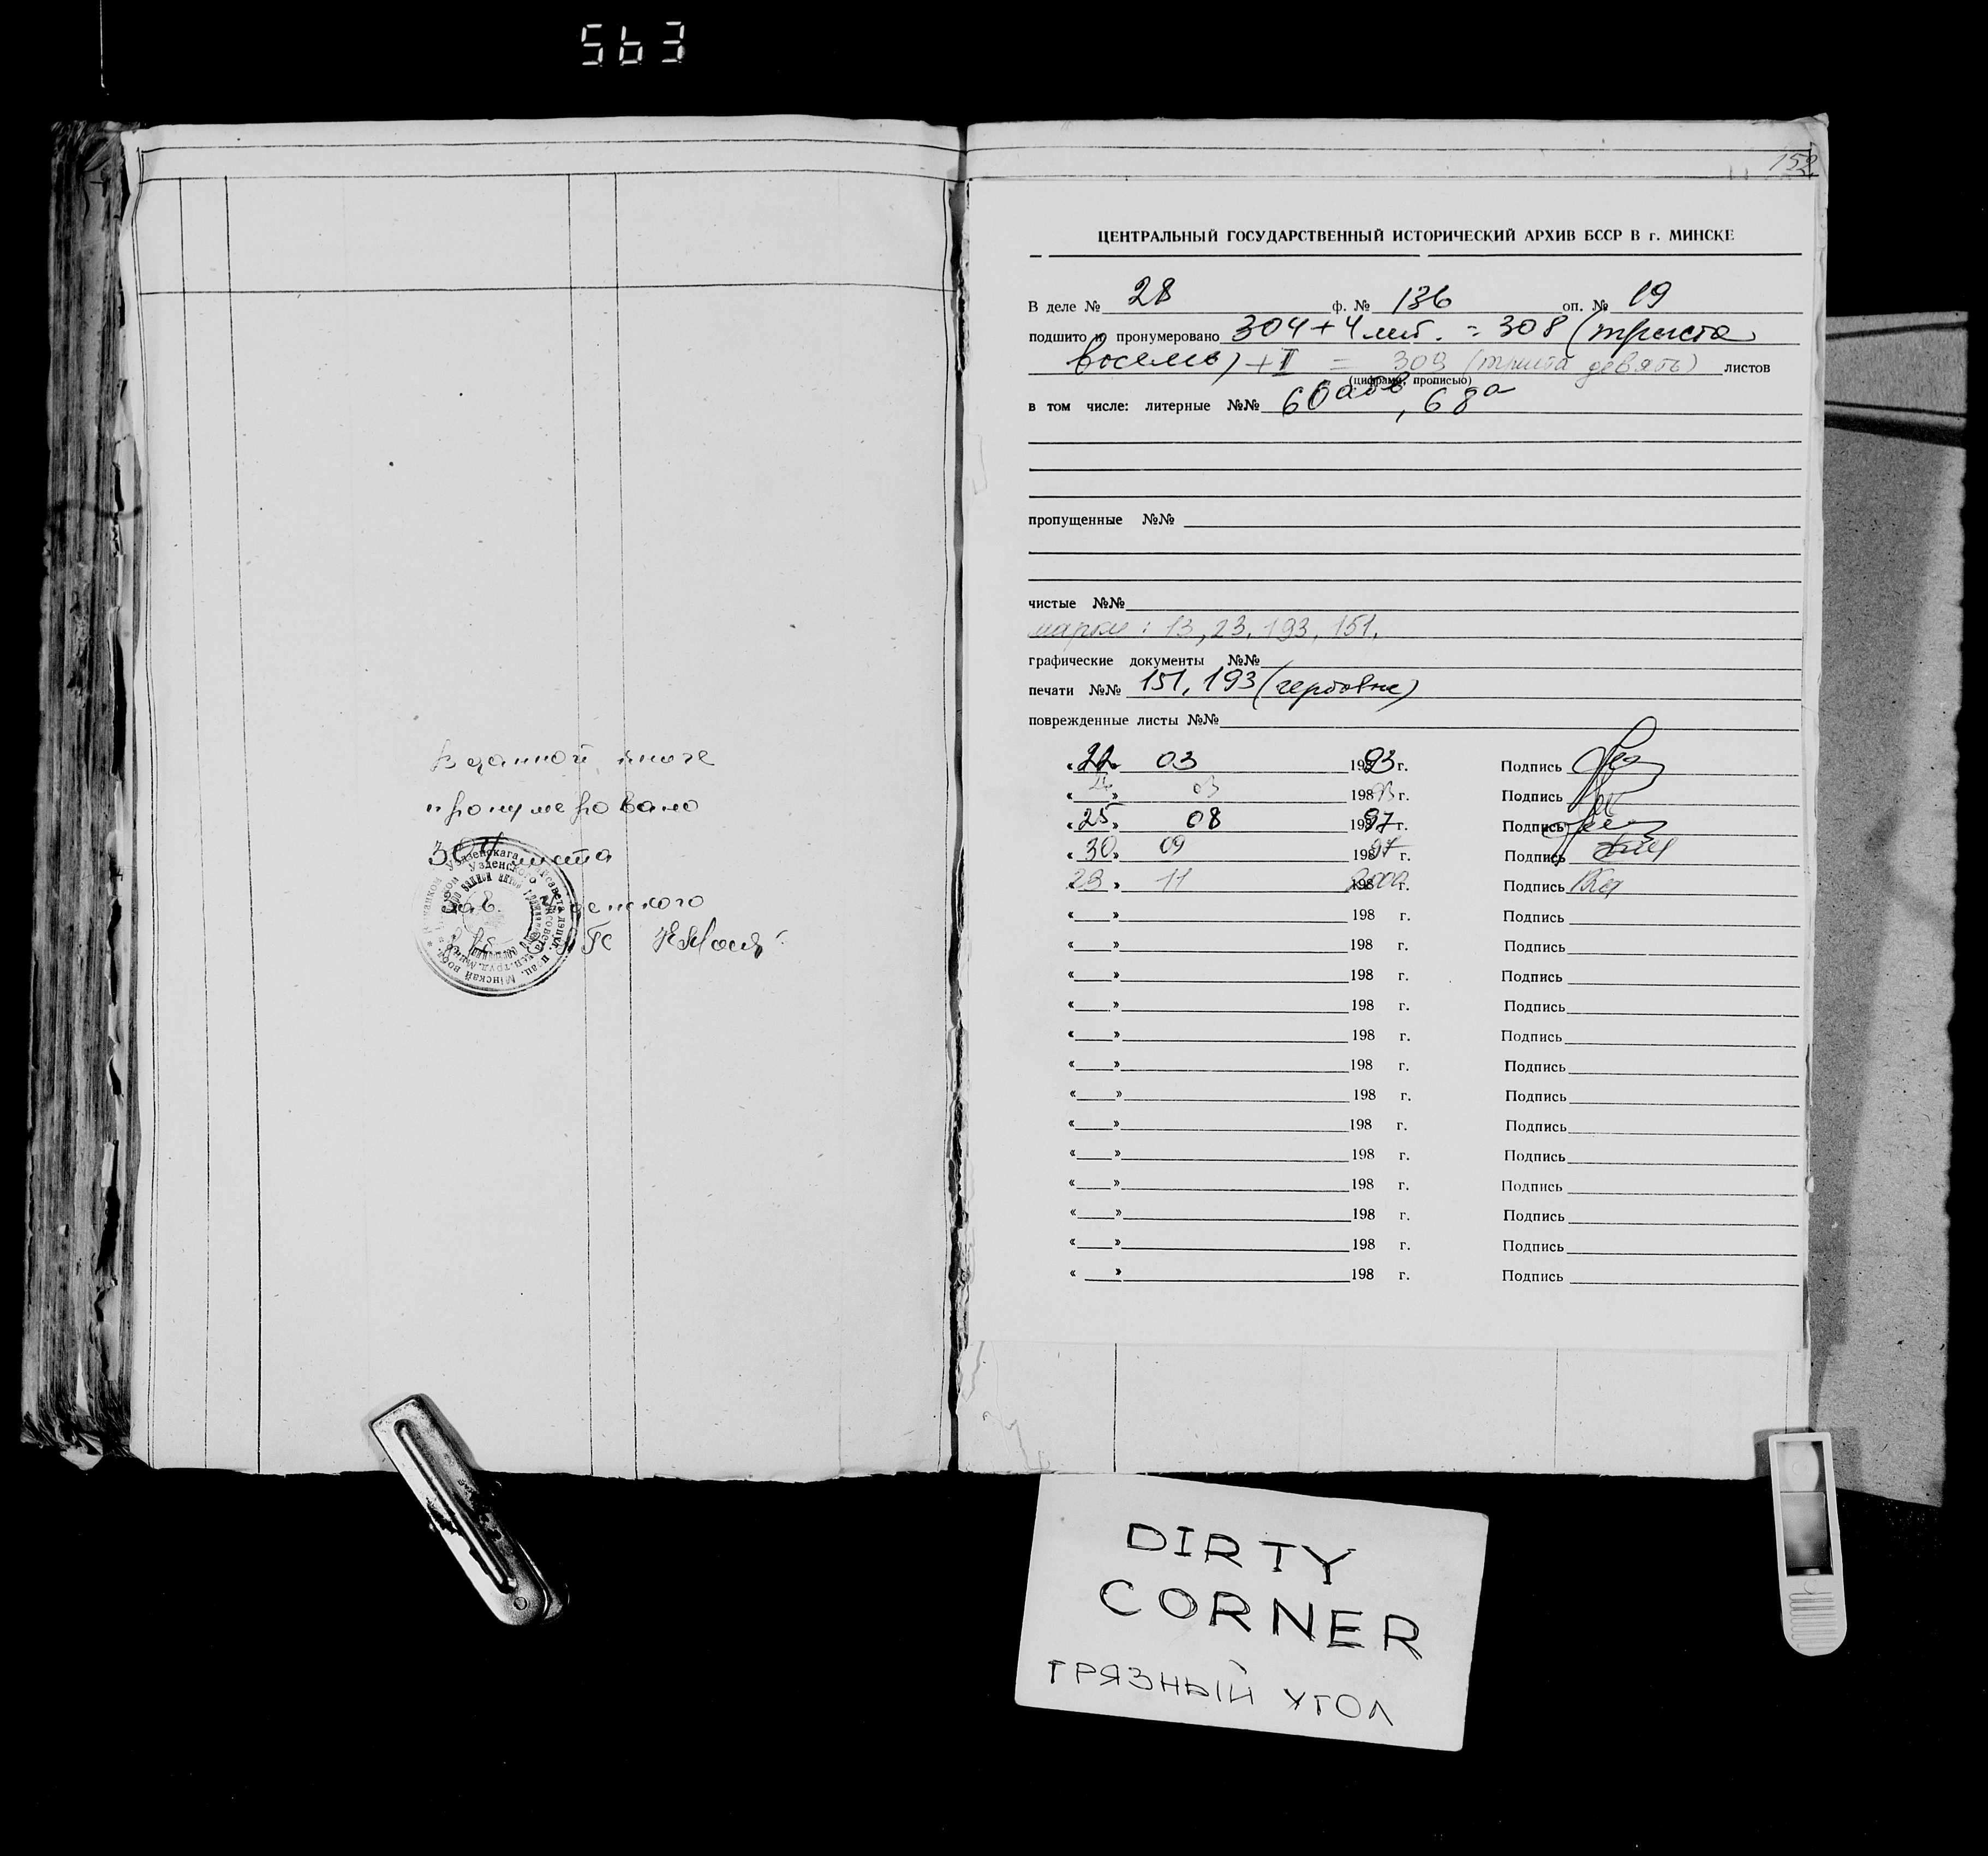 563
В данной книге
пронумеровано
304 листа
Зав.
152
ЦЕНТРАЛЬНЫЙ ГОСУДАРСТВЕННЫЙ ИСТОРИЧЕСКИЙ АРХИВ БССР В г. МИНСКЕ
В деле № 28 ф. № 136 оп. № 19
подшито и пронумеровано 304 + 4 лит. = 308 (триста
восемь) + I = 309 (триста девять) листов
(цифрами, прописью)
в том числе: литерные №№ 60абв, 68а
пропущенные №№
чистые №№
марки: 13, 23, 193, 151.
графические документы №№
печати №№ 151, 193 (гербовые)
поврежденные листы №№
«22» 03 1993 г. Подпись
« » 03 1993 г. Подпись
«25» 08 1997 г. Подпись
«30» 09 1997 г. Подпись
23 » 11 2000 г. Подпись
« » 198 г. Подпись
« » 198 г. Подпись
« » 198 г. Подпись
« » 198 г. Подпись
« » 198 г. Подпись
« » 198 г. Подпись
« » 198 г. Подпись
« » 198 г. Подпись
« » 198 г. Подпись
« » 198 г. Подпись
« » 198 г. Подпись
« » 198 г. Подпись
« » 198 г. Подпись
DIRTY
CORNER
ГРЯЗНЫЙ УГОЛ